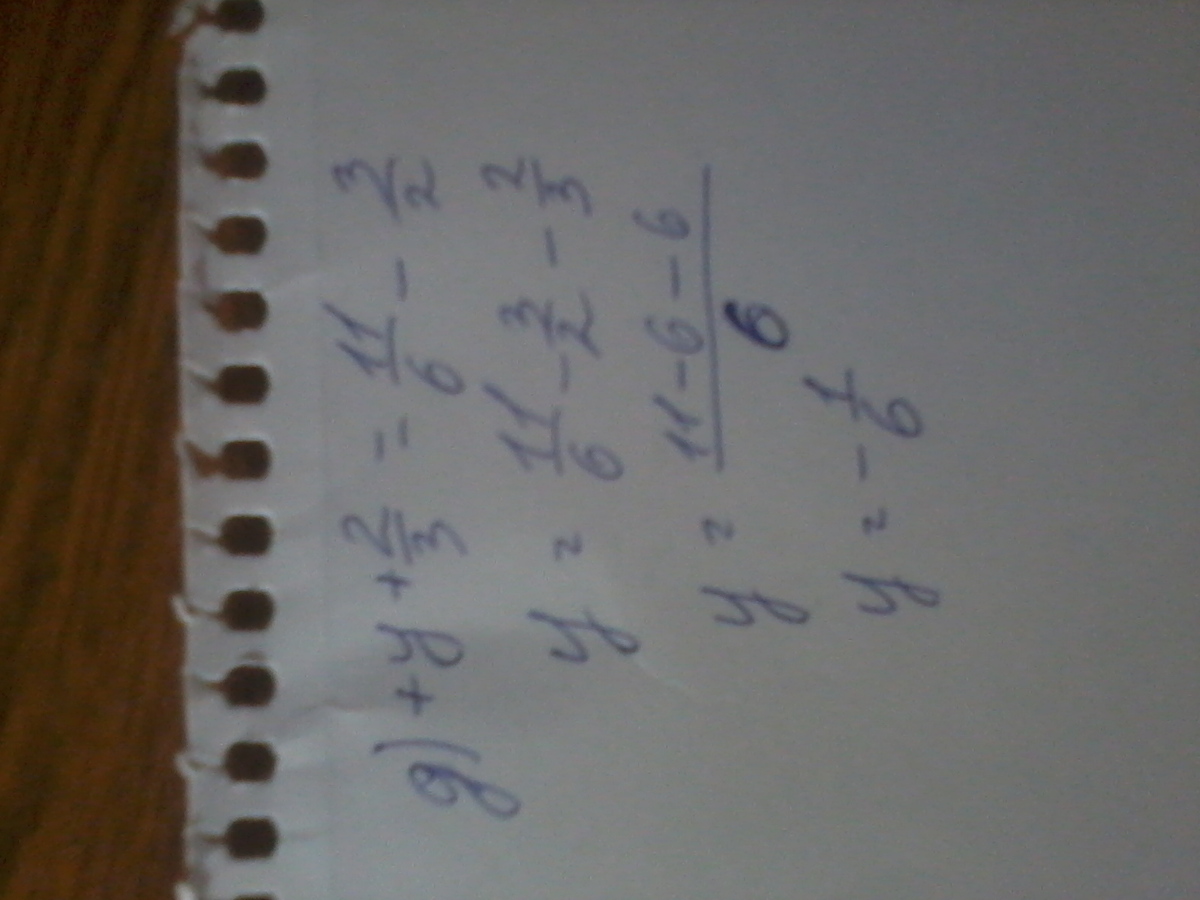 д) + y + 2/3 = 11/6 - 3/2
y = 11/6 - 3/2 - 2/3
y = (11 - 6 - 6)/6
y = - 1/6